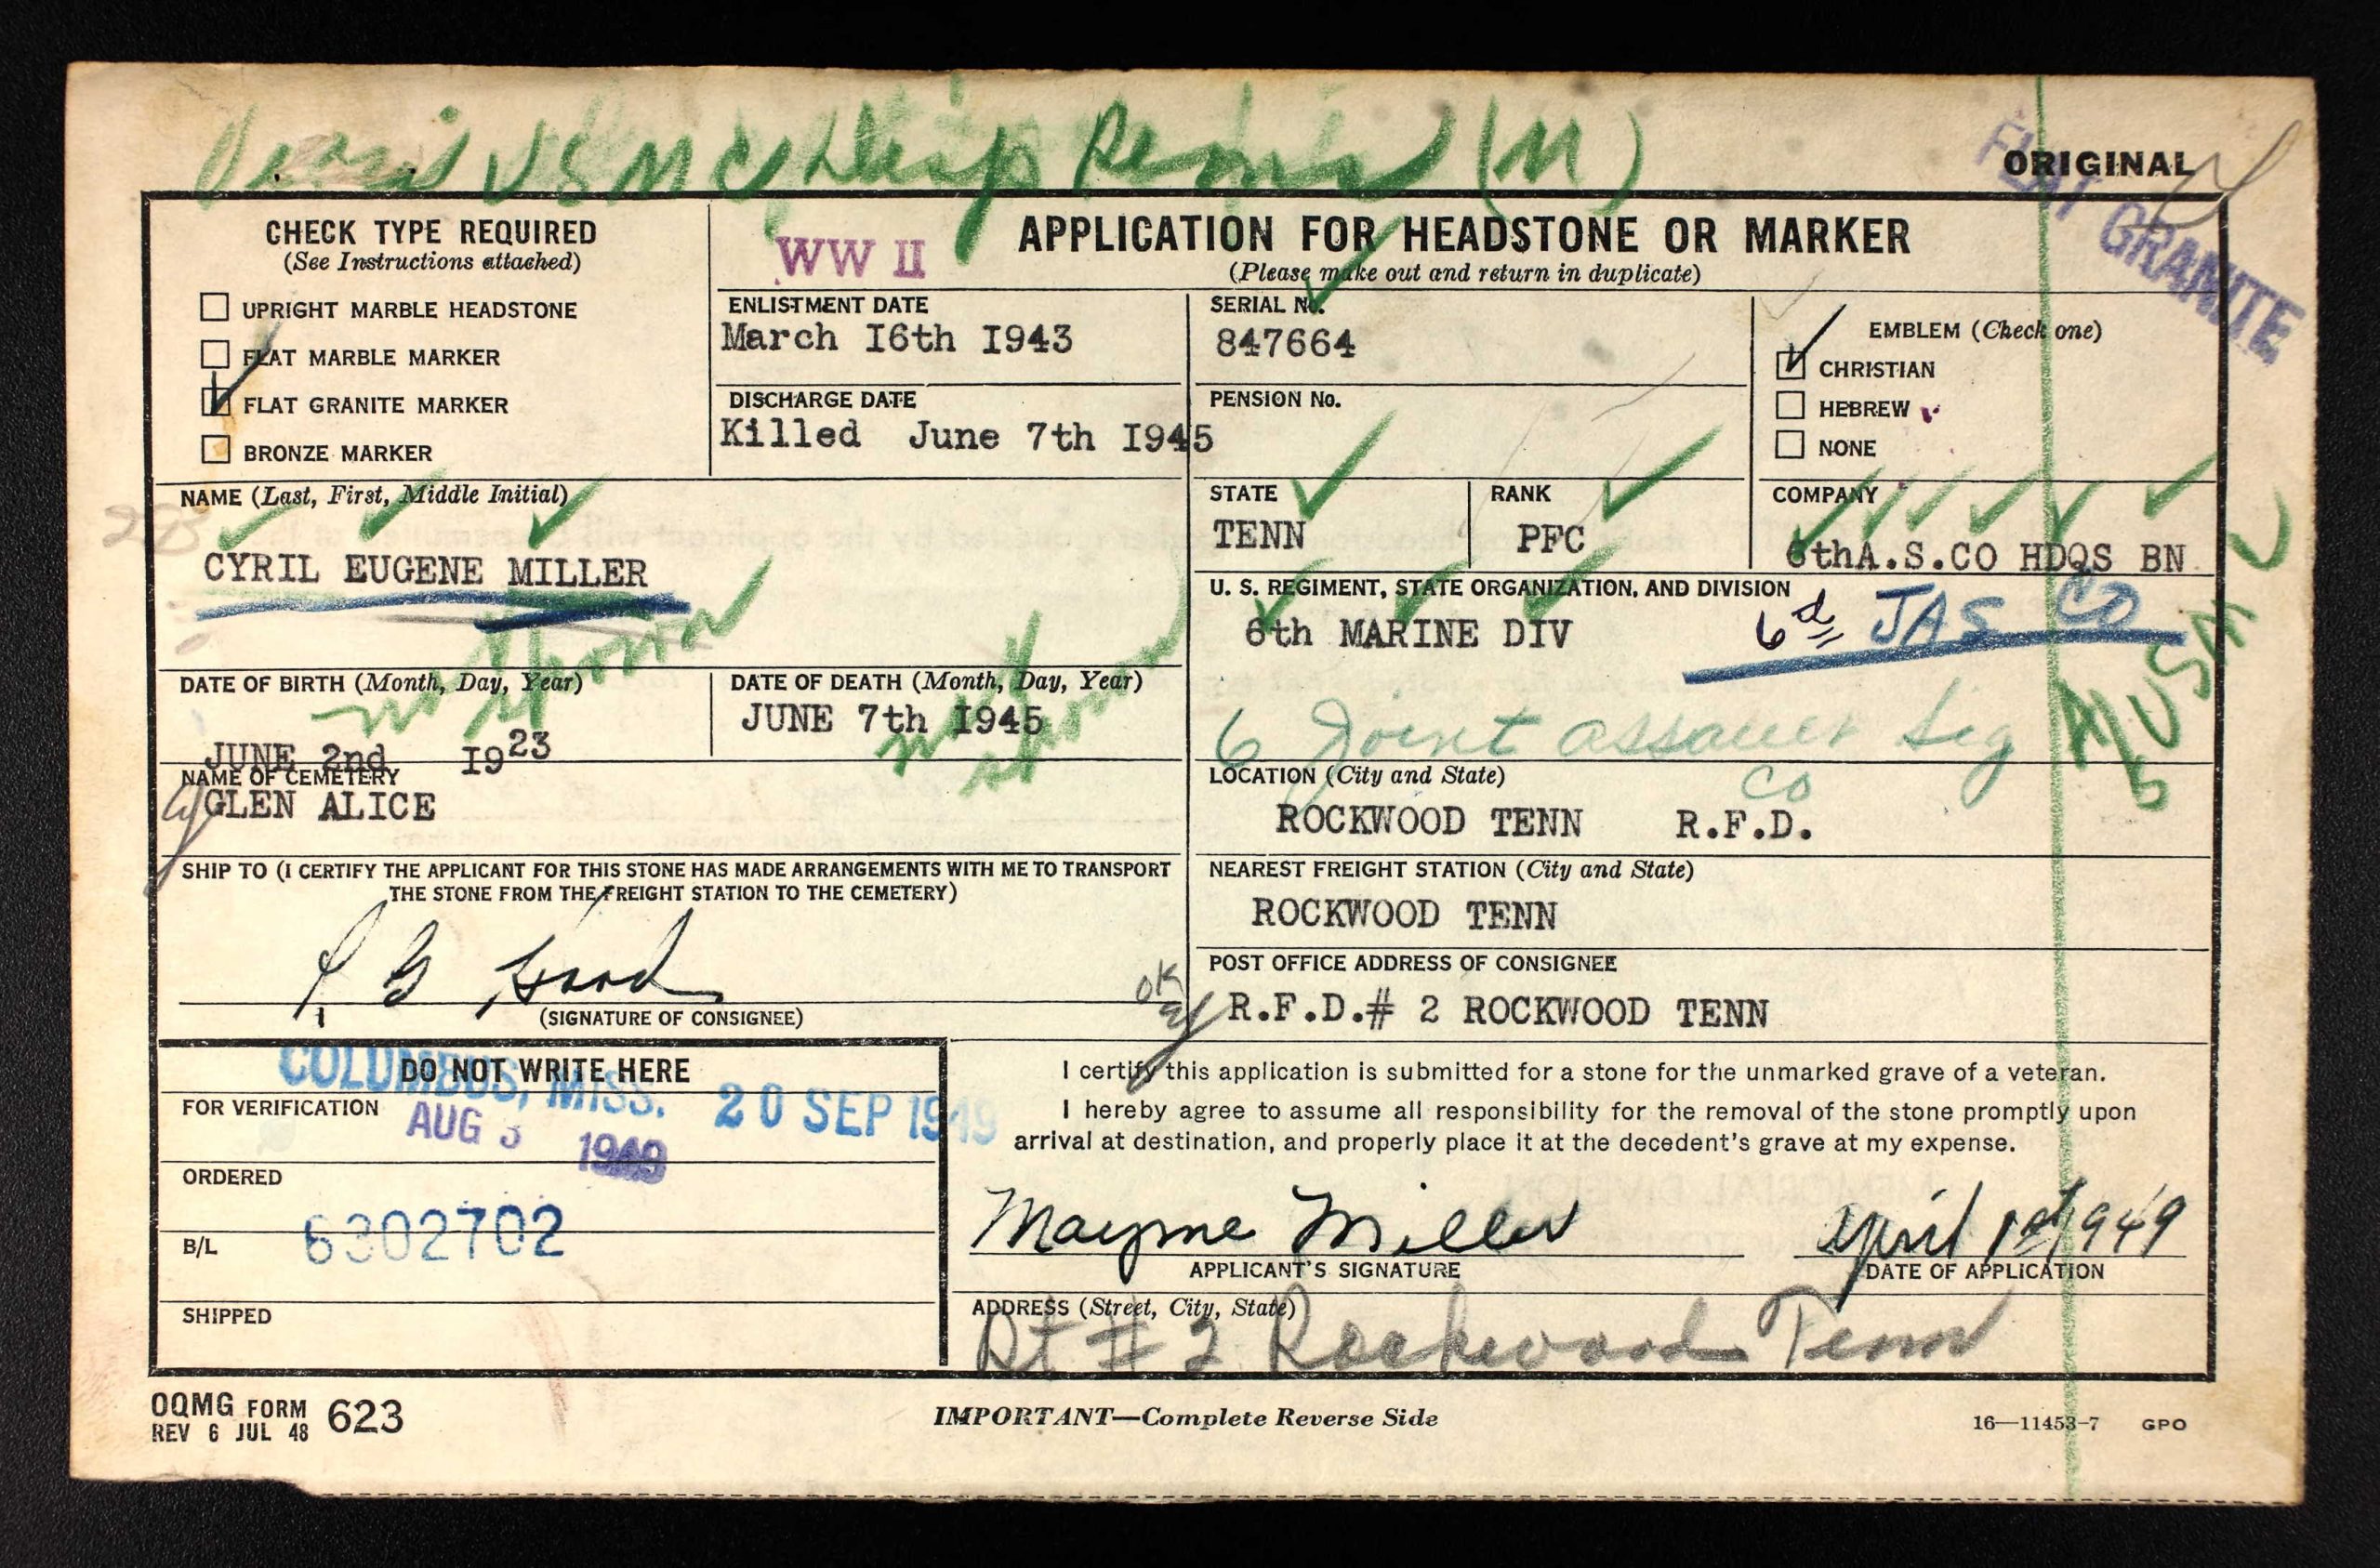 USMC
(M)
ORIGINAL
FLAT GRANITE
CHECK TYPE REQUIRED
(See Instructions attached)
☐ UPRIGHT MARBLE HEADSTONE
☐ FLAT MARBLE MARKER
☑ FLAT GRANITE MARKER
☐ BRONZE MARKER
WW II
APPLICATION FOR HEADSTONE OR MARKER
(Please make out and return in duplicate)
ENLISTMENT DATE
March I6th I943
DISCHARGE DATE
Killed June 7th I945
SERIAL No.
847664
PENSION No.
EMBLEM (Check one)
☑ CHRISTIAN
☐ HEBREW
☐ NONE
NAME (Last, First, Middle Initial)
CYRIL EUGENE MILLER
STATE
TENN
RANK
PFC
COMPANY
6thA.S.CO HDQS BN
U. S. REGIMENT, STATE ORGANIZATION, AND DIVISION
6th MARINE DIV
6th JAS CO
6 Joint Assault Sig
Co
DATE OF BIRTH (Month, Day, Year)
not shown
JUNE 2nd I923
DATE OF DEATH (Month, Day, Year)
JUNE 7th I945
not shown
NAME OF CEMETERY
GLEN ALICE
LOCATION (City and State)
ROCKWOOD TENN R.F.D.
SHIP TO (I CERTIFY THE APPLICANT FOR THIS STONE HAS MADE ARRANGEMENTS WITH ME TO TRANSPORT
THE STONE FROM THE FREIGHT STATION TO THE CEMETERY)
(SIGNATURE OF CONSIGNEE)
NEAREST FREIGHT STATION (City and State)
ROCKWOOD TENN
POST OFFICE ADDRESS OF CONSIGNEE
OK
R.F.D.# 2 ROCKWOOD TENN
DO NOT WRITE HERE
COLUMBUS, MISS. 20 SEP 1949
FOR VERIFICATION
AUG 3 1949
ORDERED
B/L
6302702
SHIPPED
I certify this application is submitted for a stone for the unmarked grave of a veteran.
I hereby agree to assume all responsibility for the removal of the stone promptly upon
arrival at destination, and properly place it at the decedent's grave at my expense.
Mayme Miller
APPLICANT'S SIGNATURE
April 1st 1949
DATE OF APPLICATION
ADDRESS (Street, City, State)
Rt # 2 Rockwood Tenn
OQMG FORM 623
REV 6 JUL 48
IMPORTANT—Complete Reverse Side
16—11453-7 GPO